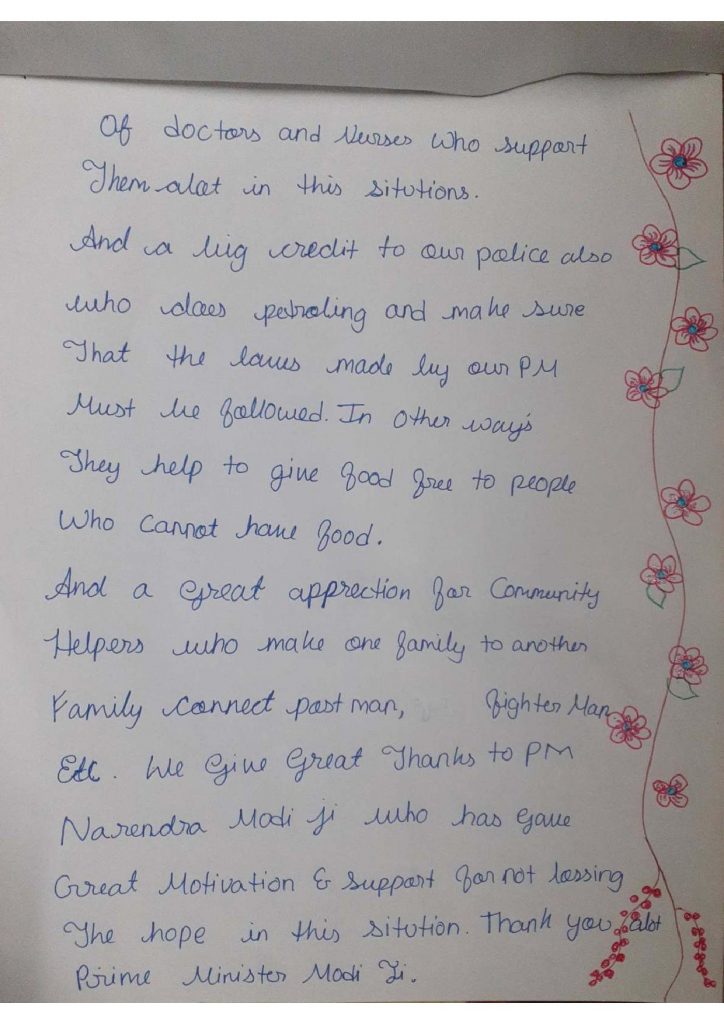 Of doctors and Nurses Who support
Them alot in this situtions.
And a big credit to our police also
who does patroling and make sure
That the laws made by our PM
Must be followed. In other way's
They help to give food free to people
Who cannot have food.
And a Great apprection for Community
Helpers who make one family to another
Family connect post man, fighter Man
Etc. We Give Great Thanks to PM
Narendra Modi ji who has gave
Great Motivation & support for not lossing
The hope in this sitution. Thank you alot
Prime Minister Modi Ji.